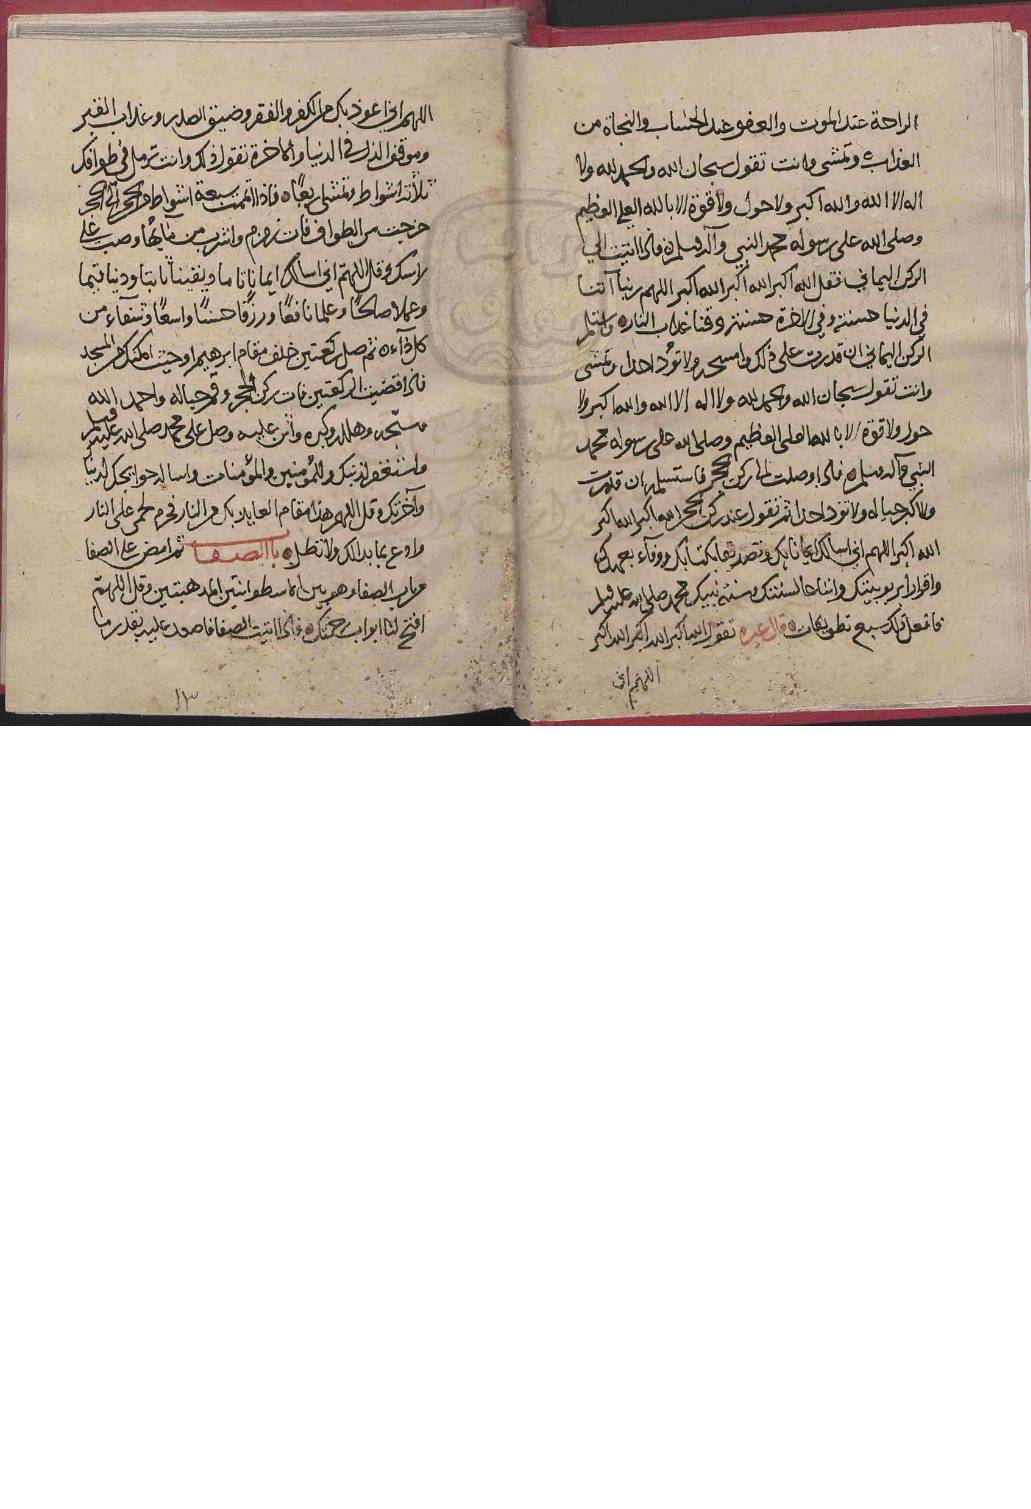 الراحة عند الموت والعفو عند الحساب والنجاة من
العذاب وتمشي وانت تقول سبحان الله والحمد لله ولا
اله الا الله والله اكبر ولا حول ولا قوة الا بالله العلي العظيم
وصلى الله على رسوله محمد النبي وآله وسلم فاذا اتيت الي
الركن اليماني فقل الله اكبر الله اكبر الله اكبر اللهم ربنا آتنا
في الدنيا حسنة وفي الاخرة حسنة وقنا عذاب النار واستلم
الركن اليماني ان قدرت على ذلك وامسحه ولا تؤذ احدا وتمشي
وانت تقول سبحان الله والحمد لله ولا اله الا الله والله اكبر ولا
حول ولا قوة الا بالله العلي العظيم وصلى الله على رسوله محمد
النبي وآله وسلم فاذا وصلت الى ركن الحجر فاستسلمه ان قدرت
والا كبر حياله ولا تؤذ احدا ثم تقول عند ركن الحجر الله اكبر الله اكبر
الله اكبر اللهم اني اسالك ايمانا بك وتصديقا بكتابك ووفاء بعهدك
واقرارا بربوبيتك واتباعا لسنتك وسنة نبيك محمد صلى الله عليه وسلم
فافعل ذلك سبع تطويفات قال غيره تقول الله اكبر الله اكبر الله اكبر
اللهم اني
اللهم اني اعوذ بك من الكفر والفقر وضيق الصدر وعذاب القبر
وموقف الذل في الدنيا والاخرة تقول ذلك وانت ترمل في طوافك
ثلاثة اشواط وتمشي اربعا فاذا اتممت سبعة اشواط من الحجر الى الحجر
خرجت من الطواف فات زمزم واشرب من مائها وصب على
راسك وقل اللهم اني اسالك ايمانا تاما ويقينا ثابتا ودينا قيما
وعملا صالحا وعلما نافعا ورزقا حسنا واسعا وشفاء من
كل داء ثم صل ركعتين خلف مقام ابرهيم او حيث امكنك من المسجد
فاذا قضيت الركعتين فات ركن الحجر وقم حياله واحمد الله
وسبحه وهلله وكبره واثن عليه وصل على محمد صلى الله عليه وسلم
واستغفر لذنبك وللمؤمنين والمؤمنات واسال حوايجك لدنياك
وآخرتك وقل اللهم هذا مقام العايذ بك من النار فحرم لحمي على النار
وادع بما بدا لك ولا تطل باب الصفا ثم امض على الصفا
من باب الصفا وهو بين الاسطوانتين المذهبتين وقل اللهم
افتح لنا ابواب رحمتك فاذا اتيت الصفا فاصعد عليه بقدر ما
١٣